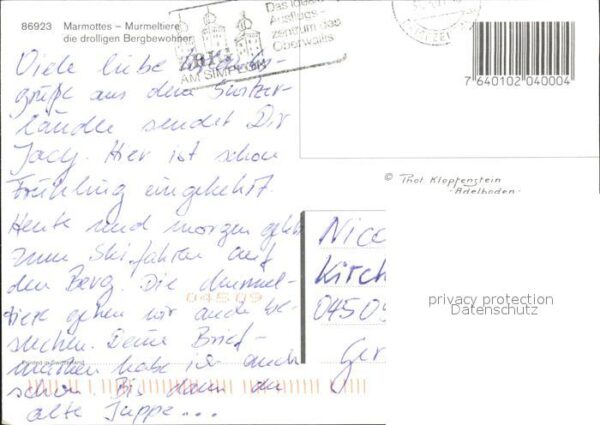 86923 Marmottes – Murmeltiere
die drolligen Bergbewohner
Das ideale
Ausflugs-
zentrum des
Oberwallis
AM SIMPLON
7 640102 040004
© Phot. Klopfenstein
- Adelboden -
Viele liebe
grüße aus dem Switzer-
ländle sendet Dir
Jacy. Hier ist schon
Frühling eingekehrt.
Heute und morgen geht's
zum Skifahren auf
den Berg. Die Murmel-
tiere gehen wir auch be-
suchen. Deine Brief-
marken habe ich auch
schon. Bis dann du
alte Suppe...
04509
Nico
Kirch
04509
Ger
privacy protection
Datenschutz
Printed in Switzerland